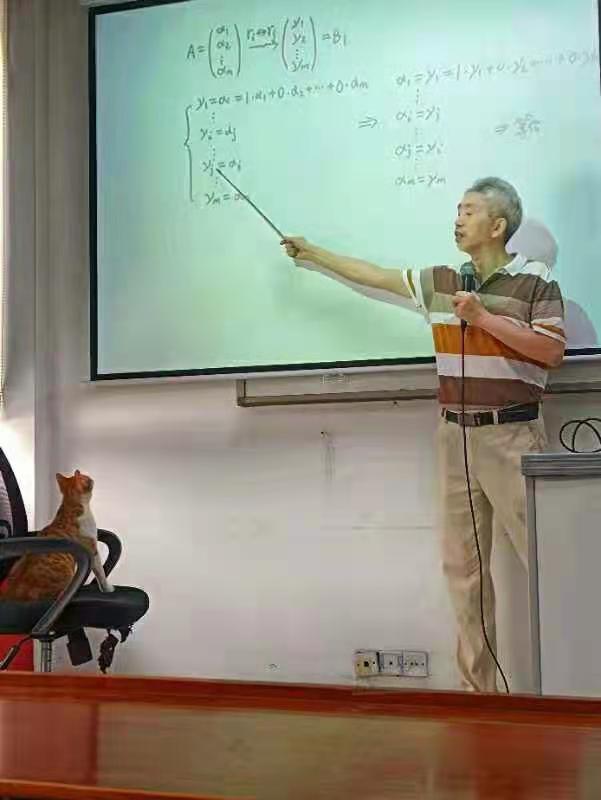 A = (α₁ α₂ ⋮ αₘ) rᵢ↔rⱼ → (γ₁ γ₂ ⋮ γₘ) = B₁
{ γ₁ = α₁ = 1·α₁+0·α₂+…+0·αₘ
⋮
γᵢ = αⱼ
⋮
γⱼ = αᵢ
⋮
γₘ = αₘ
⇒
α₁ = γ₁ = 1·γ₁+0·γ₂+…+0·γₘ
⋮
αᵢ = γⱼ
⋮
αⱼ = γᵢ
⋮
αₘ = γₘ
⇒